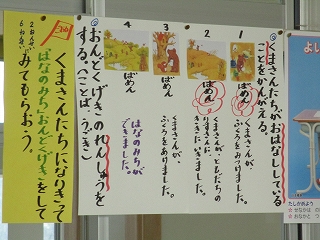 くまさんたちがおはなししている
ことをかんがえる。
1 ばめん
くまさんが、
ふくろをみつけました。
2 ばめん
くまさんが、ともだちの
りすさんに
ききにいきました。
3 ばめん
くまさんが、
ふくろをあけました。
4 ばめん
はなのみちが
できました。
おんどくげきのれんしゅうを
する。(ことば・うごき)
くまさんたちになりきって
「はなのみち」おんどくげきをして
みてもらおう。